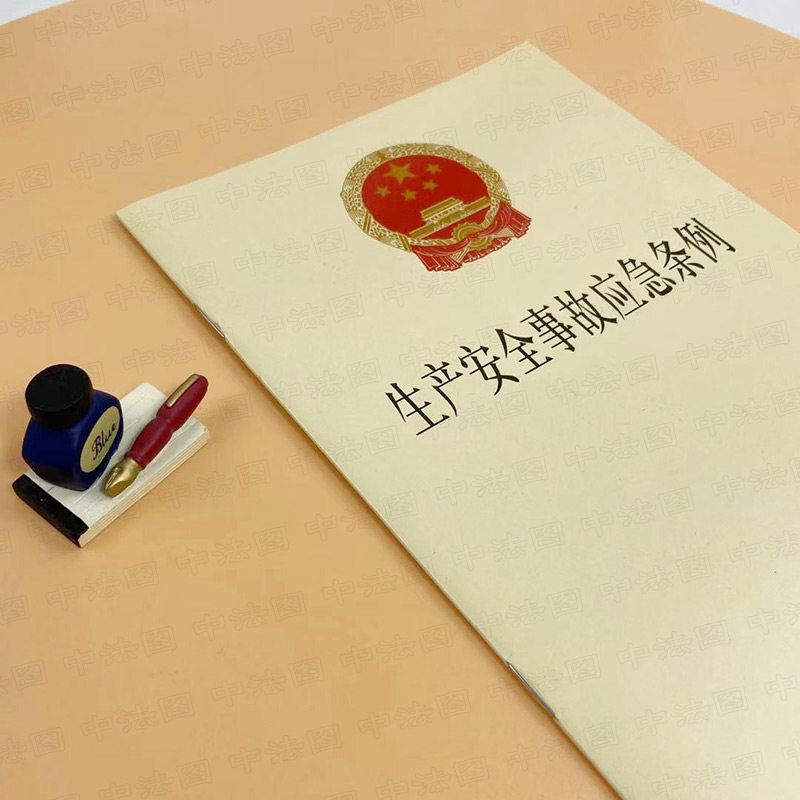 生产安全事故应急条例
Blue
中法图